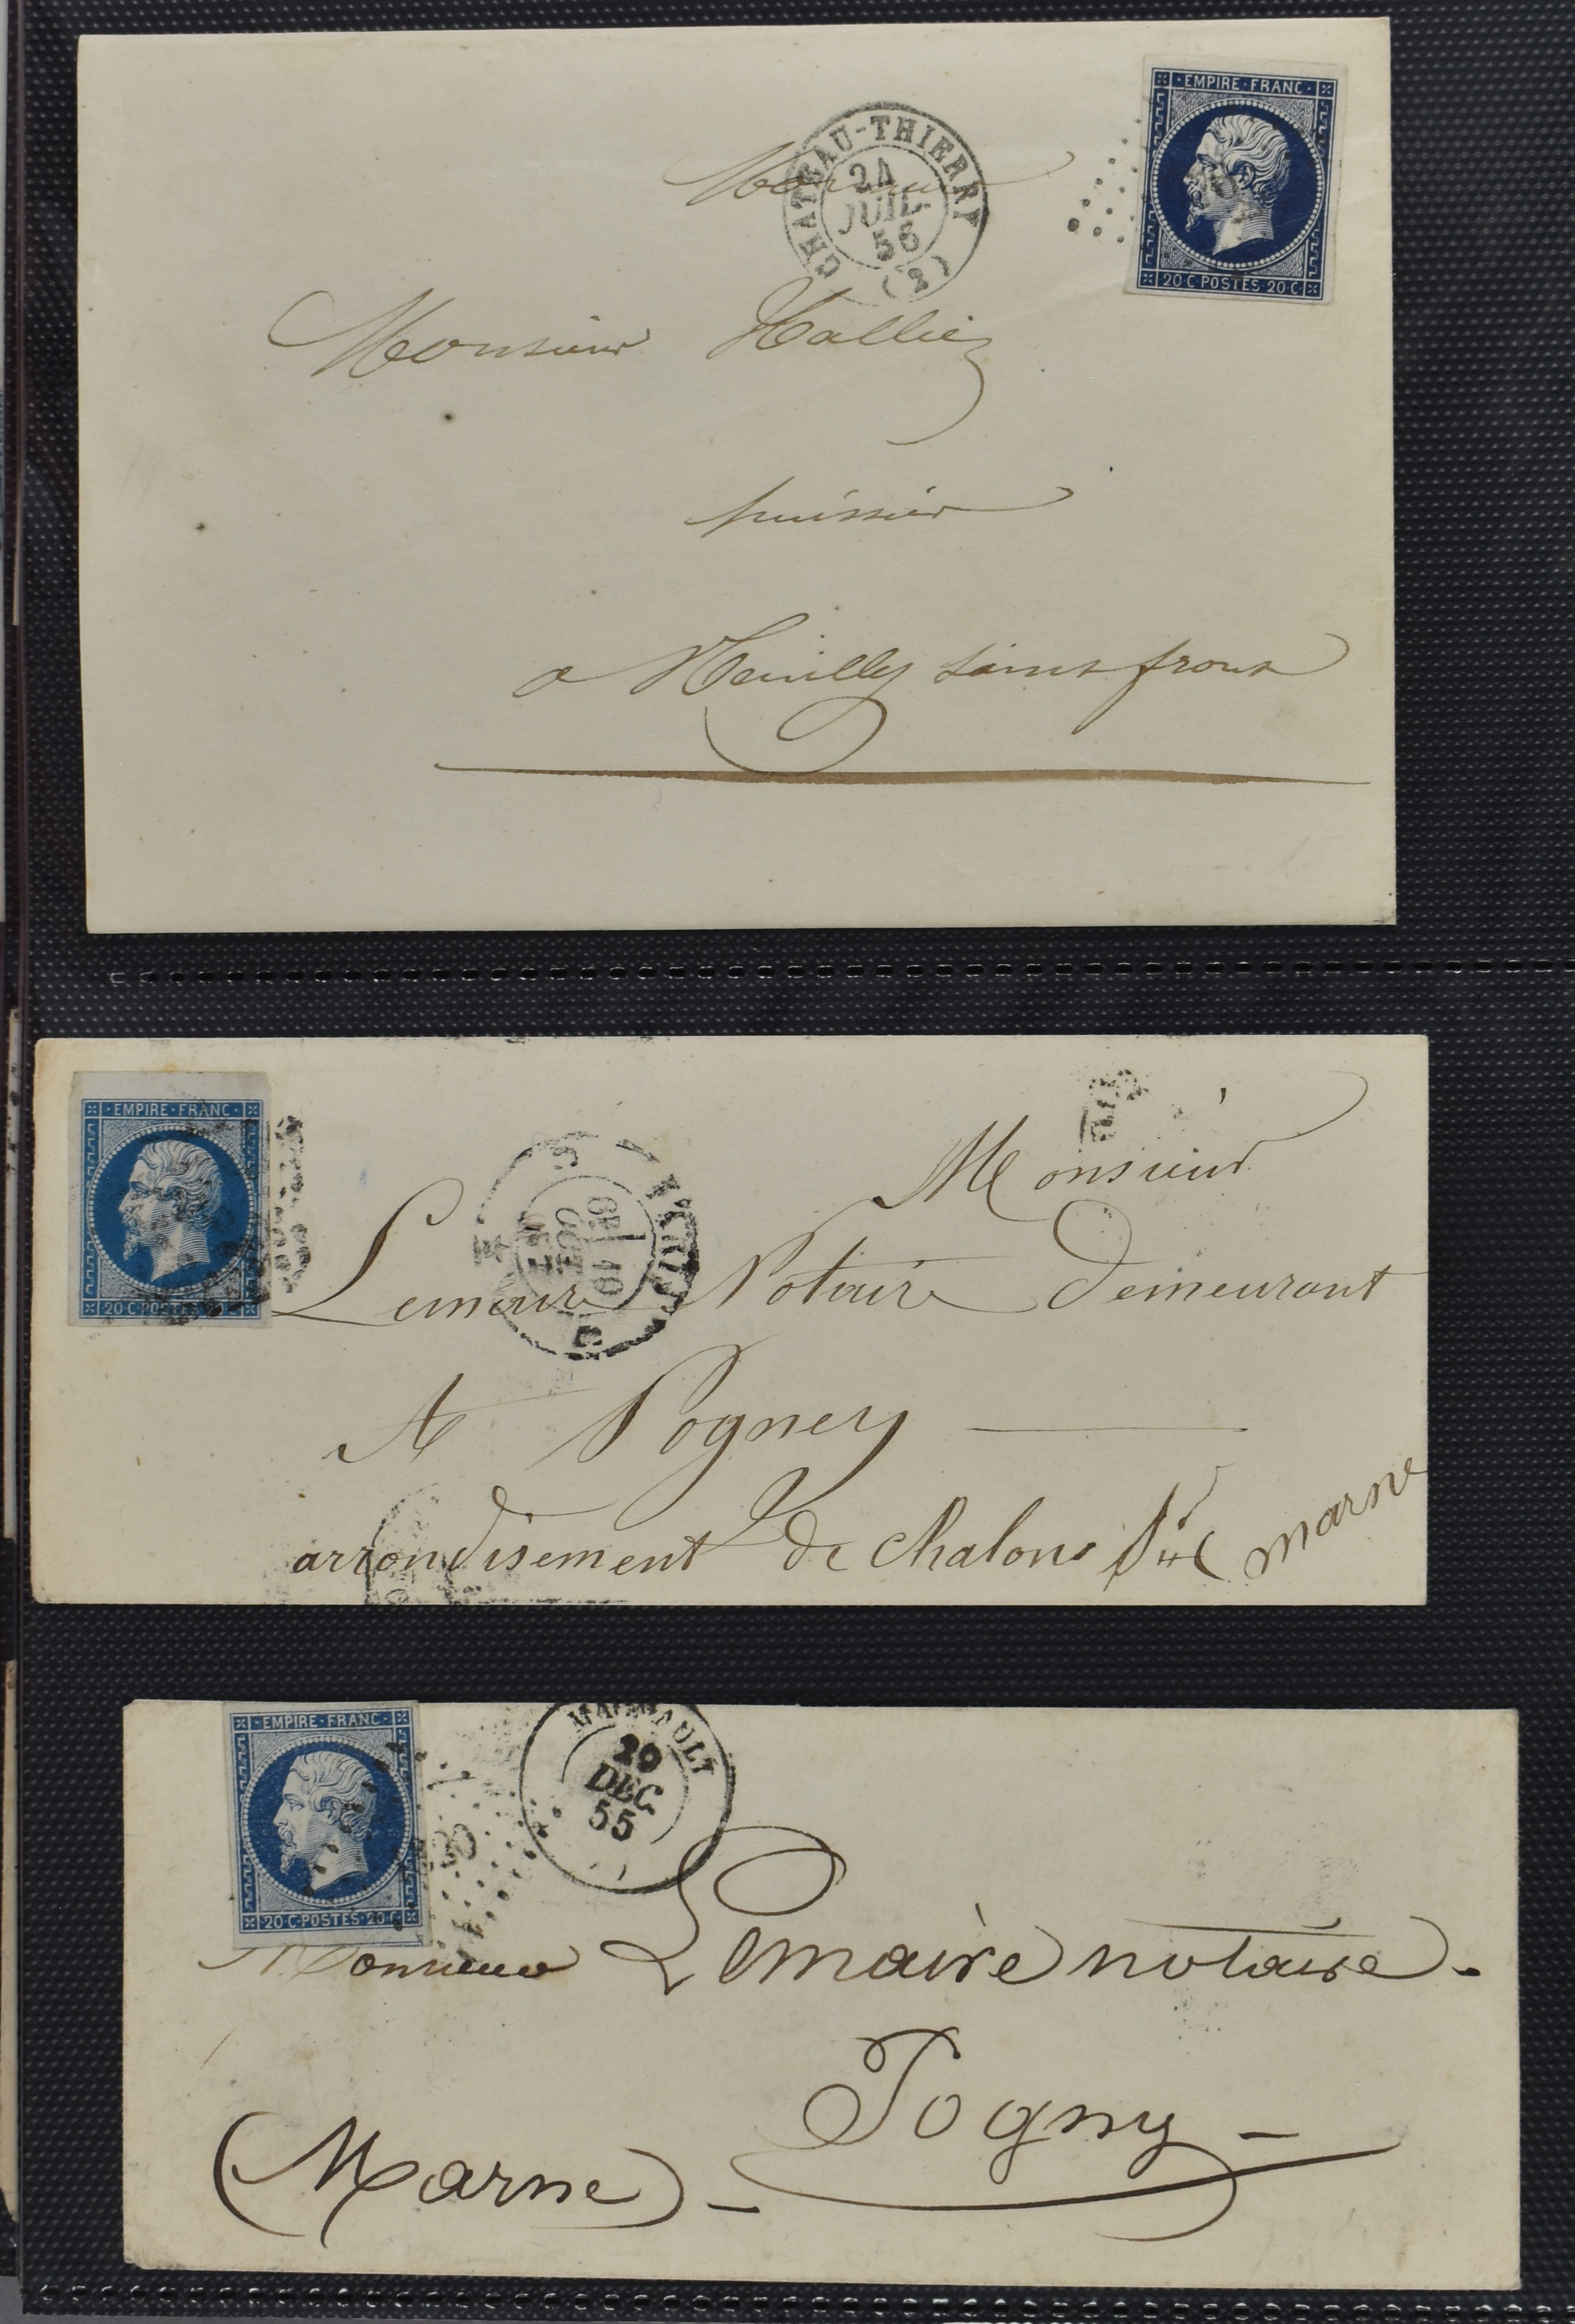 EMPIRE·FRANC·
20·C·POSTES·20·C·
CHATEAU-THIERRY
24
JUIL.
(2)
Monsieur
Monsieur Hallier
huissier
a Neuilly saint front
EMPIRE·FRANC·
20·C·POSTES
PARIS
Monsieur
Lemaire Notaire Demeurant
A Pogney
arrondisement de chalons sur marne
EMPIRE·FRANC·
20·C·POSTES·20·C·
29
DEC.
55
Monsieur Lemaire notaire.
Pogny
(Marne)